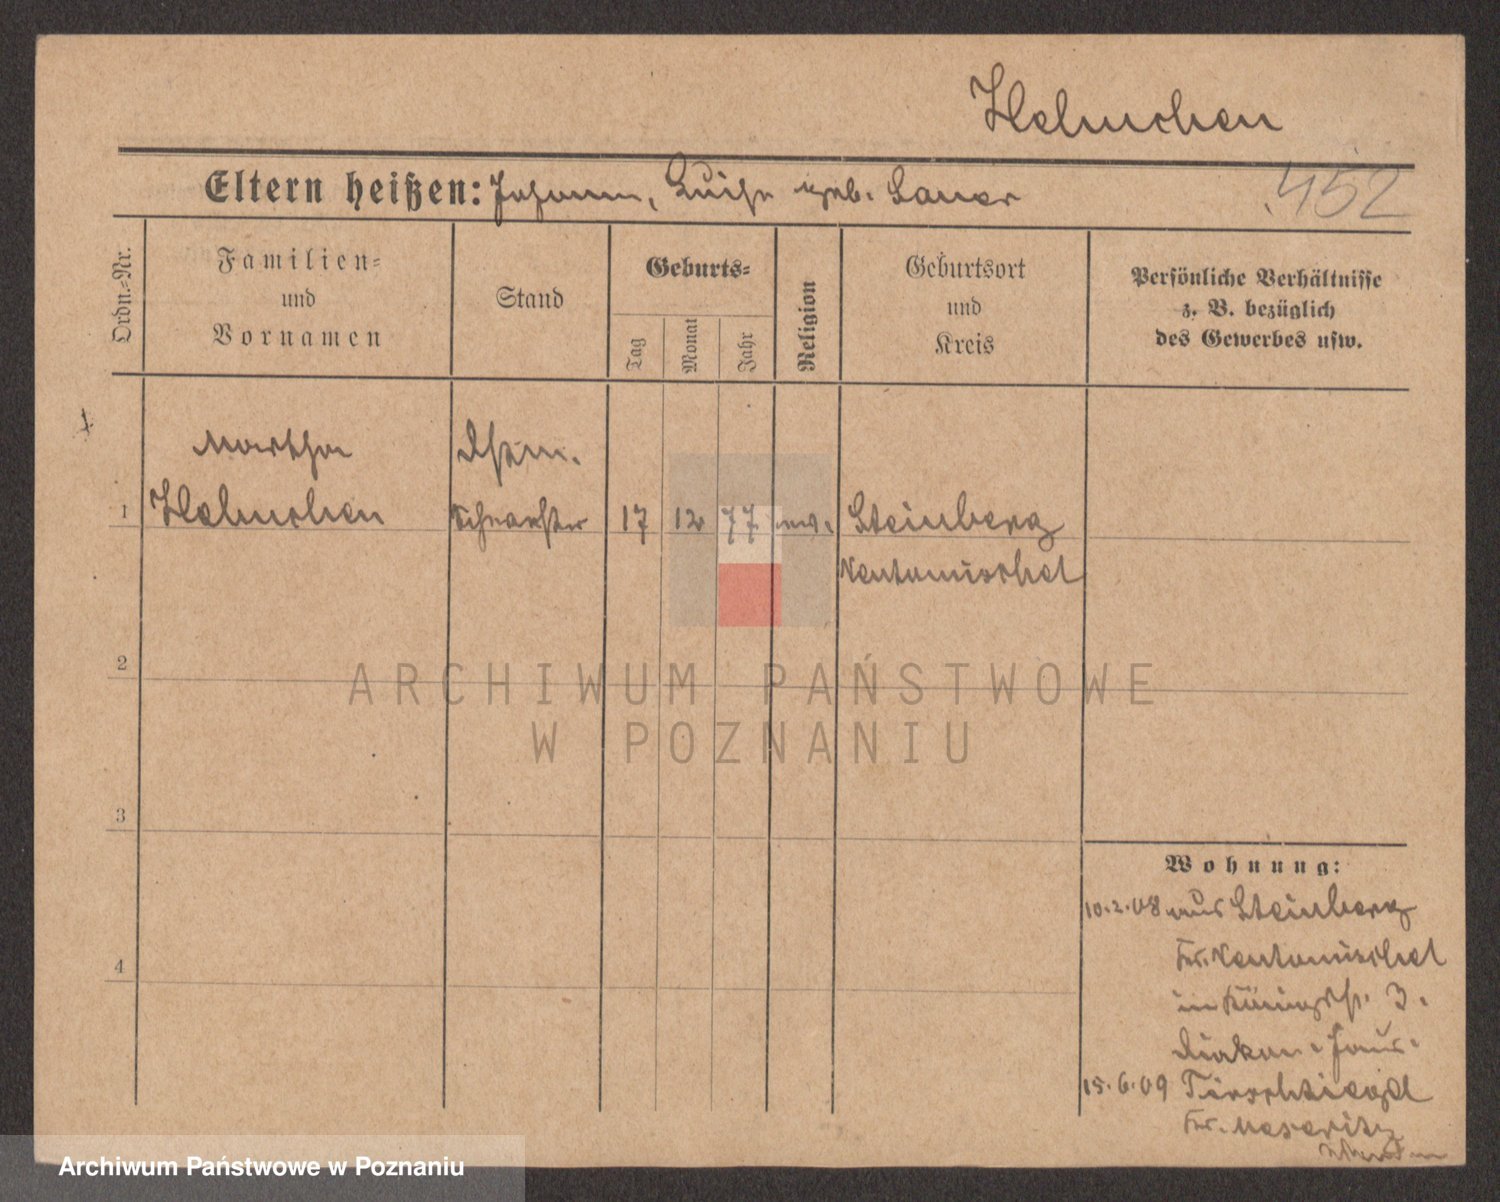 Helmchen
Eltern heißen: Johann, Luise geb. Sauer
452
Ordn.=Nr.
Familien=
und
Vornamen
Stand
Geburts=
Tag
Monat
Jahr
Religion
Geburtsort
und
Kreis
Persönliche Verhältnisse
z. B. bezüglich
des Gewerbes usw.
Martha
1 Helmchen
Schwester 17 12 77 ev. Steinberg
Neutomischel
2
3
4
ARCHIWUM PAŃSTWOWE
W POZNANIU
Wohnung:
10.2.08 aus Steinberg
Kr. Neutomischel
in Königstr. 3.
Diakon. Haus.
15.6.09 Tirschtiegel
Kr. Meseritz
Archiwum Państwowe w Poznaniu